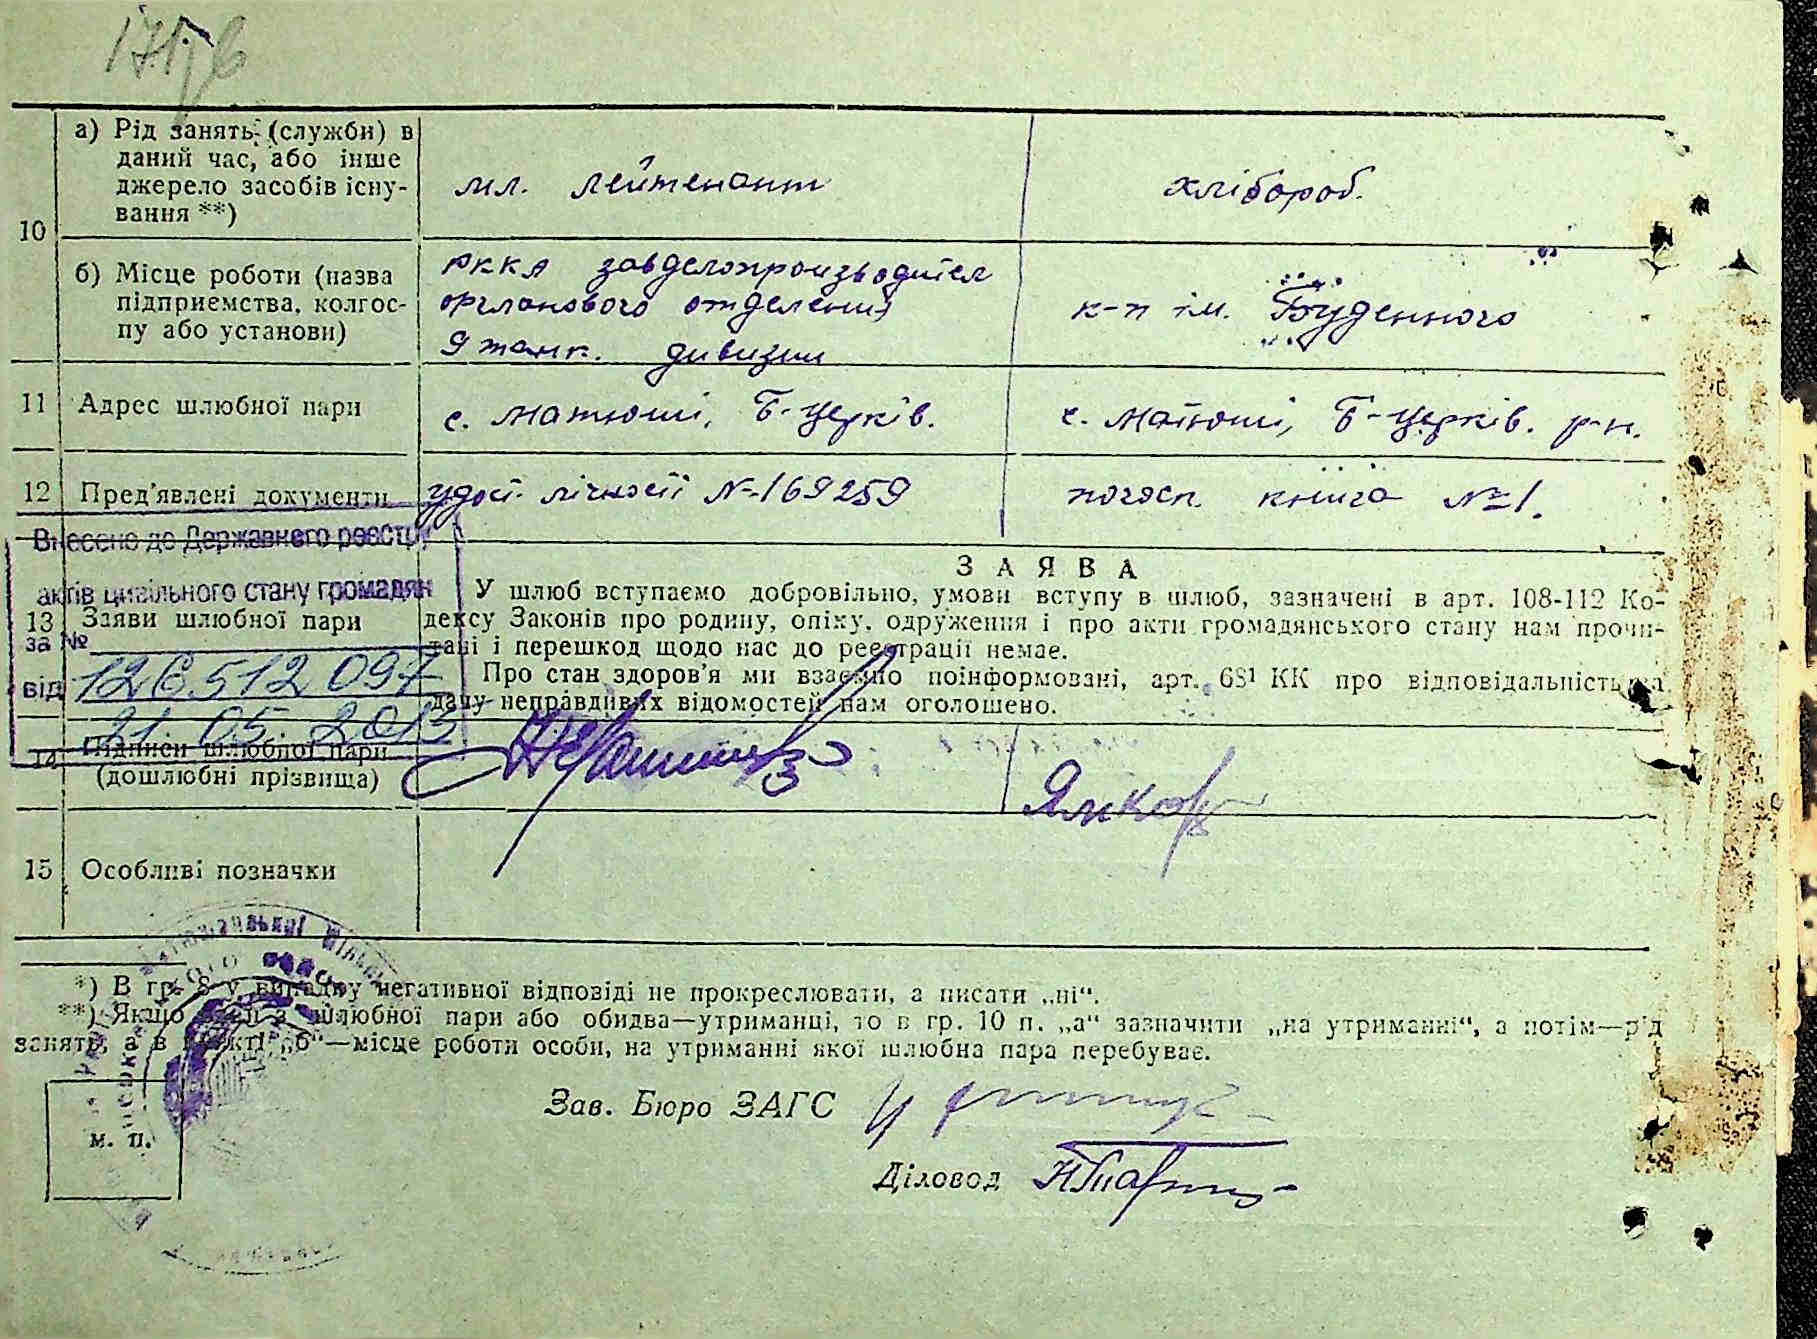 10
а) Рід занять (служби) в
даний час, або інше
джерело засобів існу-
вання **)
мл. лейтенант
хлібороб.
б) Місце роботи (назва
підприємства, колгос-
пу або установи)
РККА завделопроизводител
отделения
9 танк. дивизии
к-п ім. Буденного
11 Адрес шлюбної пари
с. Матюші, Б-Церків.
с. Матюші, Б-Церків. р-н.
12 Пред'явлені документи
удост. лічності №169259
погосп. книга №1.
Внесено до Державного реєстру
актів цивільного стану громадян
за №
126512097
від
21.05.2013
13 Заяви шлюбної пари
ЗАЯВА
У шлюб вступаємо добровільно, умови вступу в шлюб, зазначені в арт. 108-112 Ко-
дексу Законів про родину, опіку, одруження і про акти громадянського стану нам прочи-
тані і перешкод щодо нас до реєстрації немає.
Про стан здоров'я ми взаємно поінформовані, арт. 68¹ КК про відповідальність за
дачу неправдивих відомостей нам оголошено.
14 Підписи шлюбної пари
(дошлюбні прізвища)
15 Особливі позначки
*) В гр. 8 у випадку негативної відповіді не прокреслювати, а писати „ні“.
**) Якщо шлюбної пари або обидва—утриманці, то в гр. 10 п. „а“ зазначити „на утриманні“, а потім—рід
занять, а в пункті „б“—місце роботи особи, на утриманні якої шлюбна пара перебуває.
Зав. Бюро ЗАГС
м. п.
Діловод